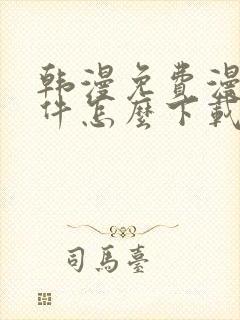 韩漫免费漫
件怎麼下載
司馬臺